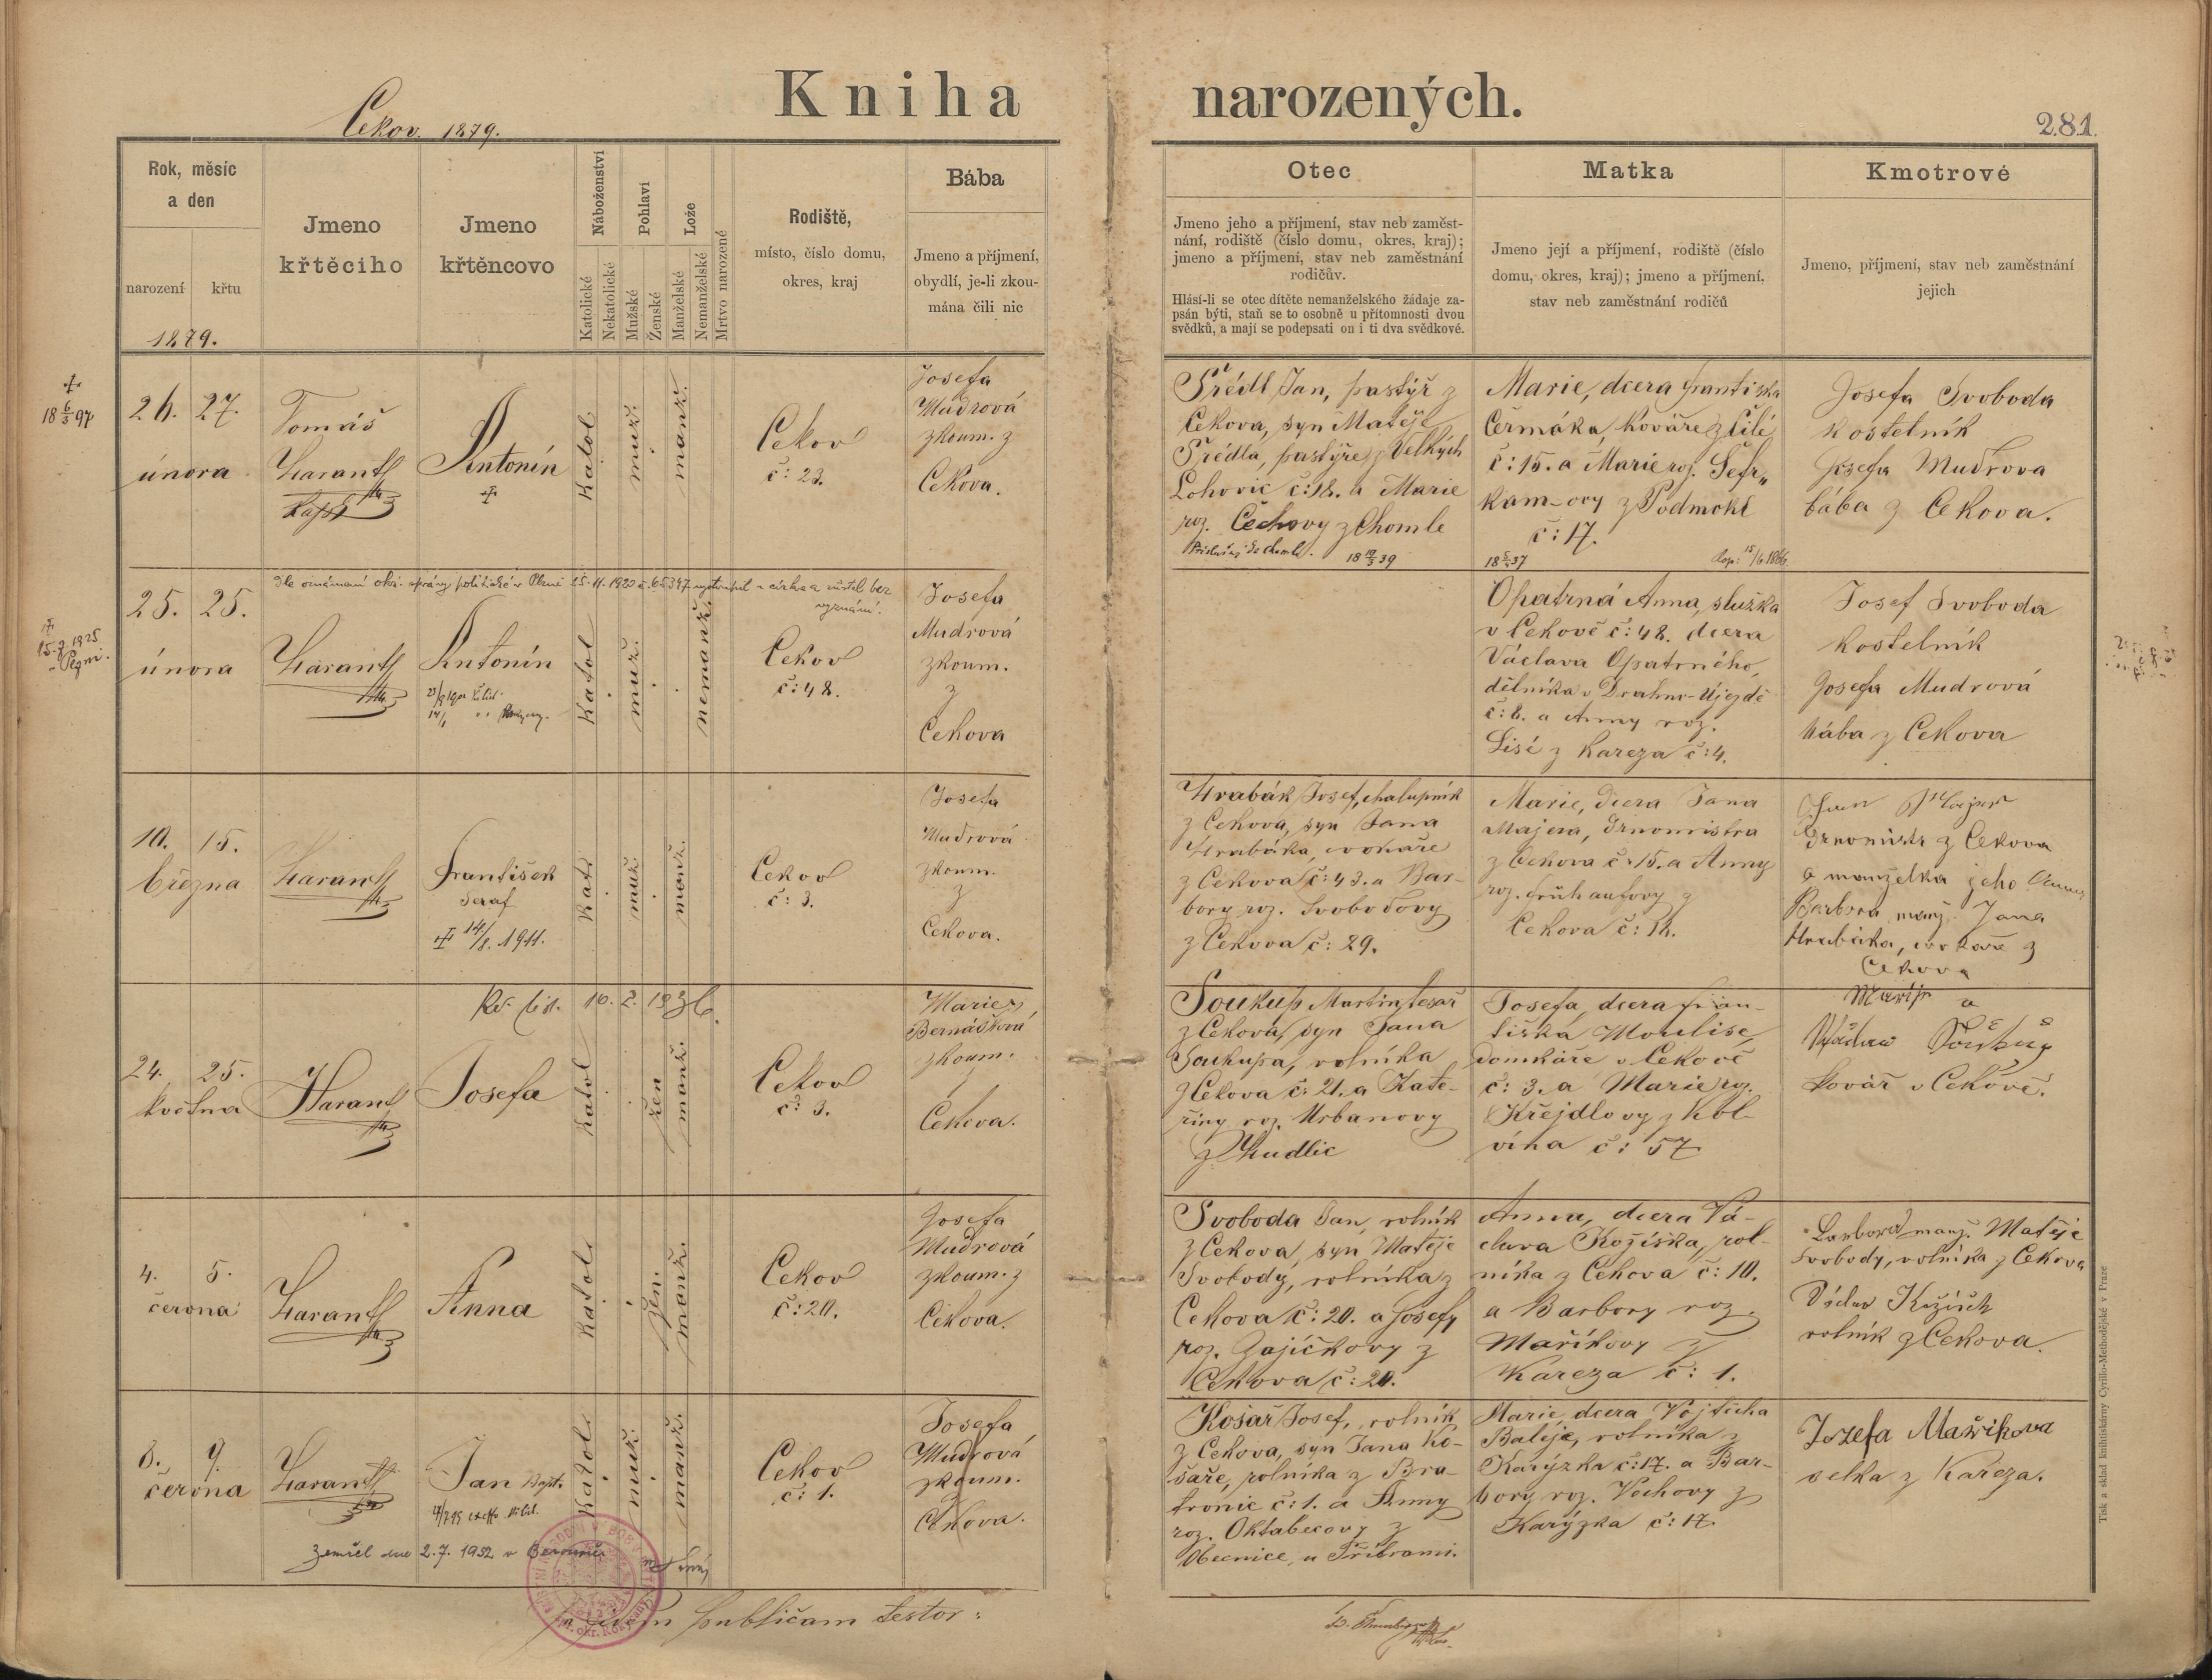 Kniha narozených.
Cekov. 1879.
281.
Rok, měsíc
a den
narození
křtu
1879.
Jmeno
křtěcího
Jmeno
křtěncovo
Náboženství
Katolické
Nekatolické
Pohlaví
Mužské
Ženské
Lože
Manželské
Nemanželské
Mrtvo narozené
Rodiště,
místo, číslo domu,
okres, kraj
Bába
Jmeno a příjmení,
obydlí, je-li zkou-
mána čili nic
Otec
Jmeno jeho a příjmení, stav neb zaměst-
nání, rodiště (číslo domu, okres, kraj);
jmeno a příjmení, stav neb zaměstnání
rodičův.
Hlásí-li se otec dítěte nemanželského žádaje za-
psán býti, staň se to osobně u přítomnosti dvou
svědků, a mají se podepsati on i ti dva svědkové.
Matka
Jmeno její a příjmení, rodiště (číslo
domu, okres, kraj); jmeno a příjmení,
stav neb zaměstnání rodičů
Kmotrové
Jmeno, příjmení, stav neb zaměstnání
jejich
26. 27.
února
Tomáš
Harant
Antonín
Katol.
muž.
manž.
Cekov
č: 23.
Josefa
Mudrová
zkoum. z
Cekova.
Trédl Jan, pastýř z
Cekova, syn Matěje
Trédla, pastýře z Velkých
Lohovic č: 18. a Marie
roz. Čechovy z Chomle
Marie, dcera Františka
Čermáka, kováře z
č: 15. a Marie roz. Šefr„
kam-ovy z Podmokl
č: 17.
Josefa Svoboda
kostelník
Josefa Mudrova
bába z Cekova.
25. 25.
února
Harant
Antonín
Katol
muž.
nemanž.
Cekov
č: 48.
Josefa
Mudrová
zkoum.
z
Cekova
Opatrná Anna, služka
v Cekově č: 48. dcera
Václava Opatrného,
dělníka v Drahno-Újezdě
č: 8. a Anny roz.
Lisé z Kareza č: 4.
Josef Svoboda
kostelník
Josefa Mudrová
bába z Cekova
10. 15.
března
Harant
František
Seraf
14/8. 1911.
Kat.
muž.
manž.
Cekov
č: 3.
Josefa
Mudrová
zkoum.
z
Cekova.
Hrabák Josef, chalupník
z Cekova, syn Jana
Hrabáka, cvokaře
z Cekova č: 43. a Bar-
bory roz. Svobodovy
z Cekova č: 29.
Marie, dcera Jana
Majera, Brnomistra
z Cekova č: 15. a Anny
roz. Frühaufovy z
Cekova č: 16.
Jan Majer
z Cekova
a manželka jeho Anna
Barbora, manž. Jana
Hrabáka, cvokaře z
Cekova
24. 25.
května
Harant
Josefa
Katol
žen
manž.
Cekov
č: 3.
Marie
Bernášková
zkoum.
z
Cekova.
Soukup Martin, tesař
z Cekova, syn Jana
Soukupa, rolníka
z Cekova č: 21. a Kate-
řiny roz. Urbanovy
z Hudlic
Josefa, dcera Fran-
tiška Moulise,
domkáře v Cekově
č: 3. a Marie roz.
Křejdlovy z Kbl-
vína č: 57
Marije a
Václav Soukup
kovář v Cekově.
4. 5.
června
Harant
Anna
Katol.
žen.
manž.
Cekov
č: 20.
Josefa
Mudrová
zkoum. z
Cekova.
Svoboda Jan, rolník
z Cekova, syn Matěje
Svobody, rolníka z
Cekova č: 20. a Josefy
roz. Zajíčkovy z
Cekova č: 20.
Anna, dcera Vá-
clava Kožíška, rol-
níka z Cekova č: 10.
a Barbory roz.
Maříkovy z
Kareza č: 1.
Barbora manž. Matěje
Svobody, rolníka z Cekova
Václav Kožíšek
rolník z Cekova.
8. 9.
června
Harant
Jan Bapt.
Katol.
muž.
manž.
Cekov
č: 1.
Josefa
Mudrová
zkoum.
Cekova.
Zemřel dne 2.7.1952 v Berouně
Košař Josef, rolník
z Cekova, syn Jana Ko-
šaře, rolníka z Bra-
tronic č: 1. a Anny
roz. Oktabecovy z
Obecnice, u Příbrami.
Marie, dcera Vojtěcha
Baleje, rolníka z
Karýzka č: 17. a Bar-
bory roz. Vochovy z
Karýzka č: 17.
Jozefa Mařikova
selka z Kařeza.
fidem publicam testor:
Tisk a sklad knihtiskárny Cyrillo-Methodějské v Praze